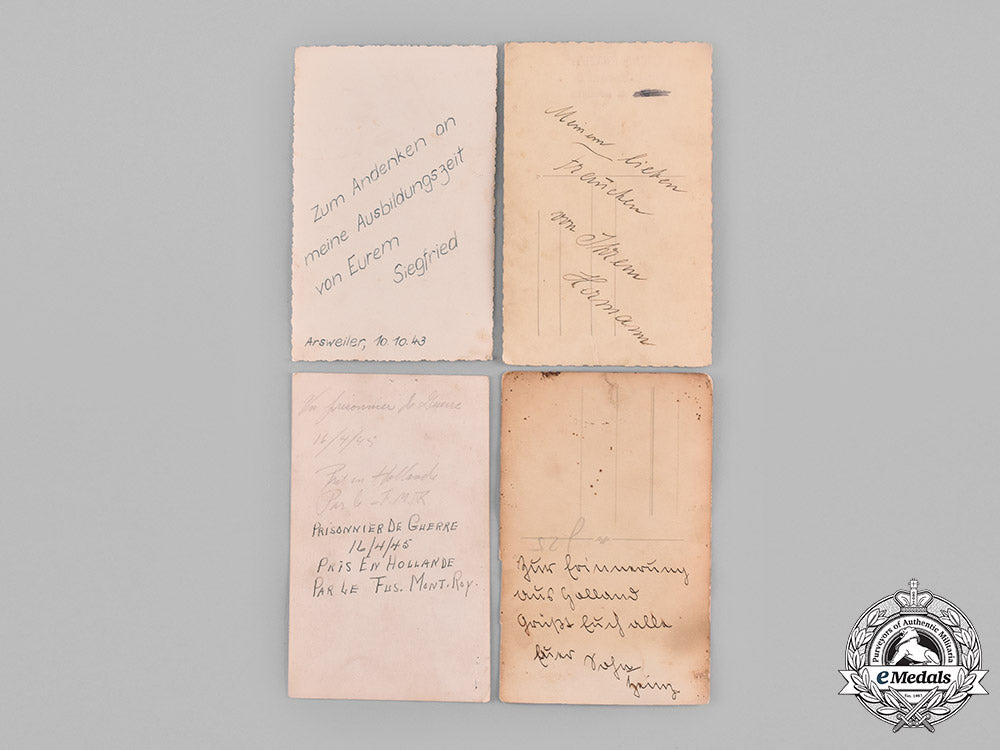 Zum Andenken an
meine Ausbildungszeit
von Eurem
Siegfried
Arsweiler, 10.10.43
Meinem lieben
Frauchen
von Ihrem
Hermann
Un prisonnier de Guerre
16/4/45
Pris en Hollande
Par le F.M.R
PRISONNIER DE GUERRE
16/4/45
PRIS EN HOLLANDE
PAR LE FUS. MONT. ROY.
Zur Erinnerung
aus Holland
Grüßt Euch alle
Euer Sohn
Heinz
Purveyors of Authentic Militaria
eMedals